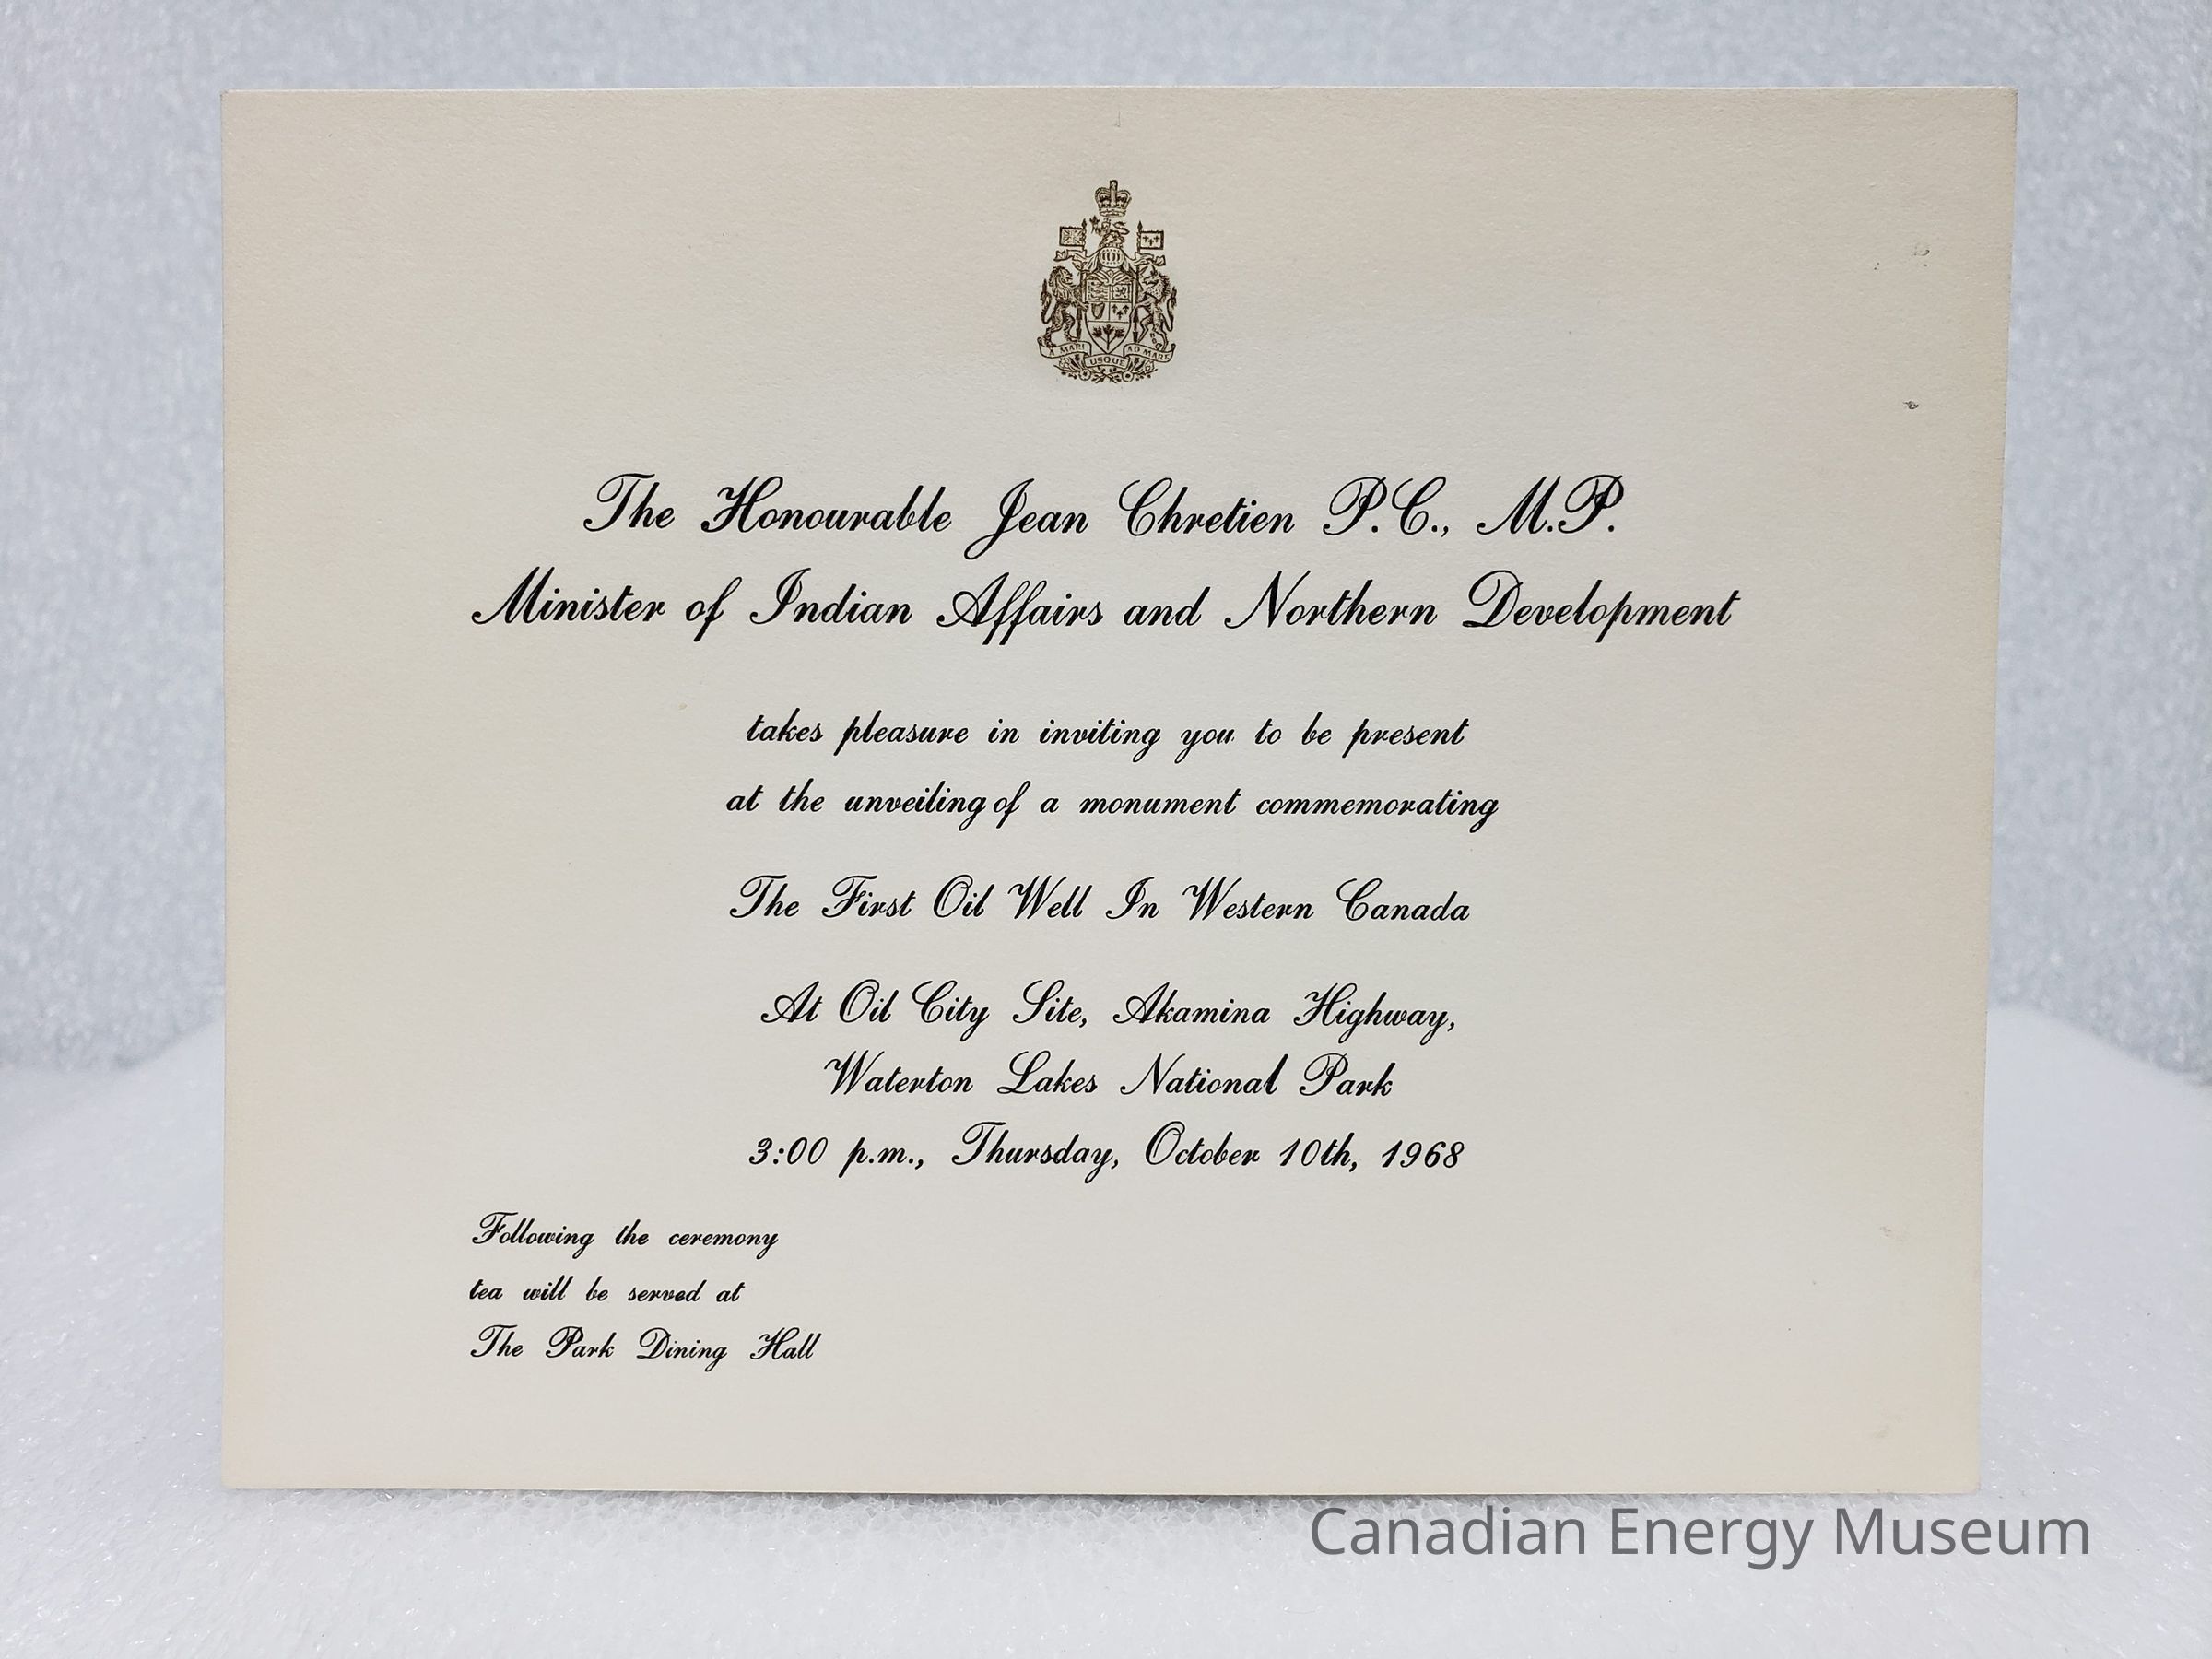 A MARI USQUE AD MARE
The Honourable Jean Chretien P.C., M.P.
Minister of Indian Affairs and Northern Development
takes pleasure in inviting you to be present
at the unveiling of a monument commemorating
The First Oil Well In Western Canada
At Oil City Site, Akamina Highway,
Waterton Lakes National Park
3:00 p.m., Thursday, October 10th, 1968
Following the ceremony
tea will be served at
The Park Dining Hall
Canadian Energy Museum